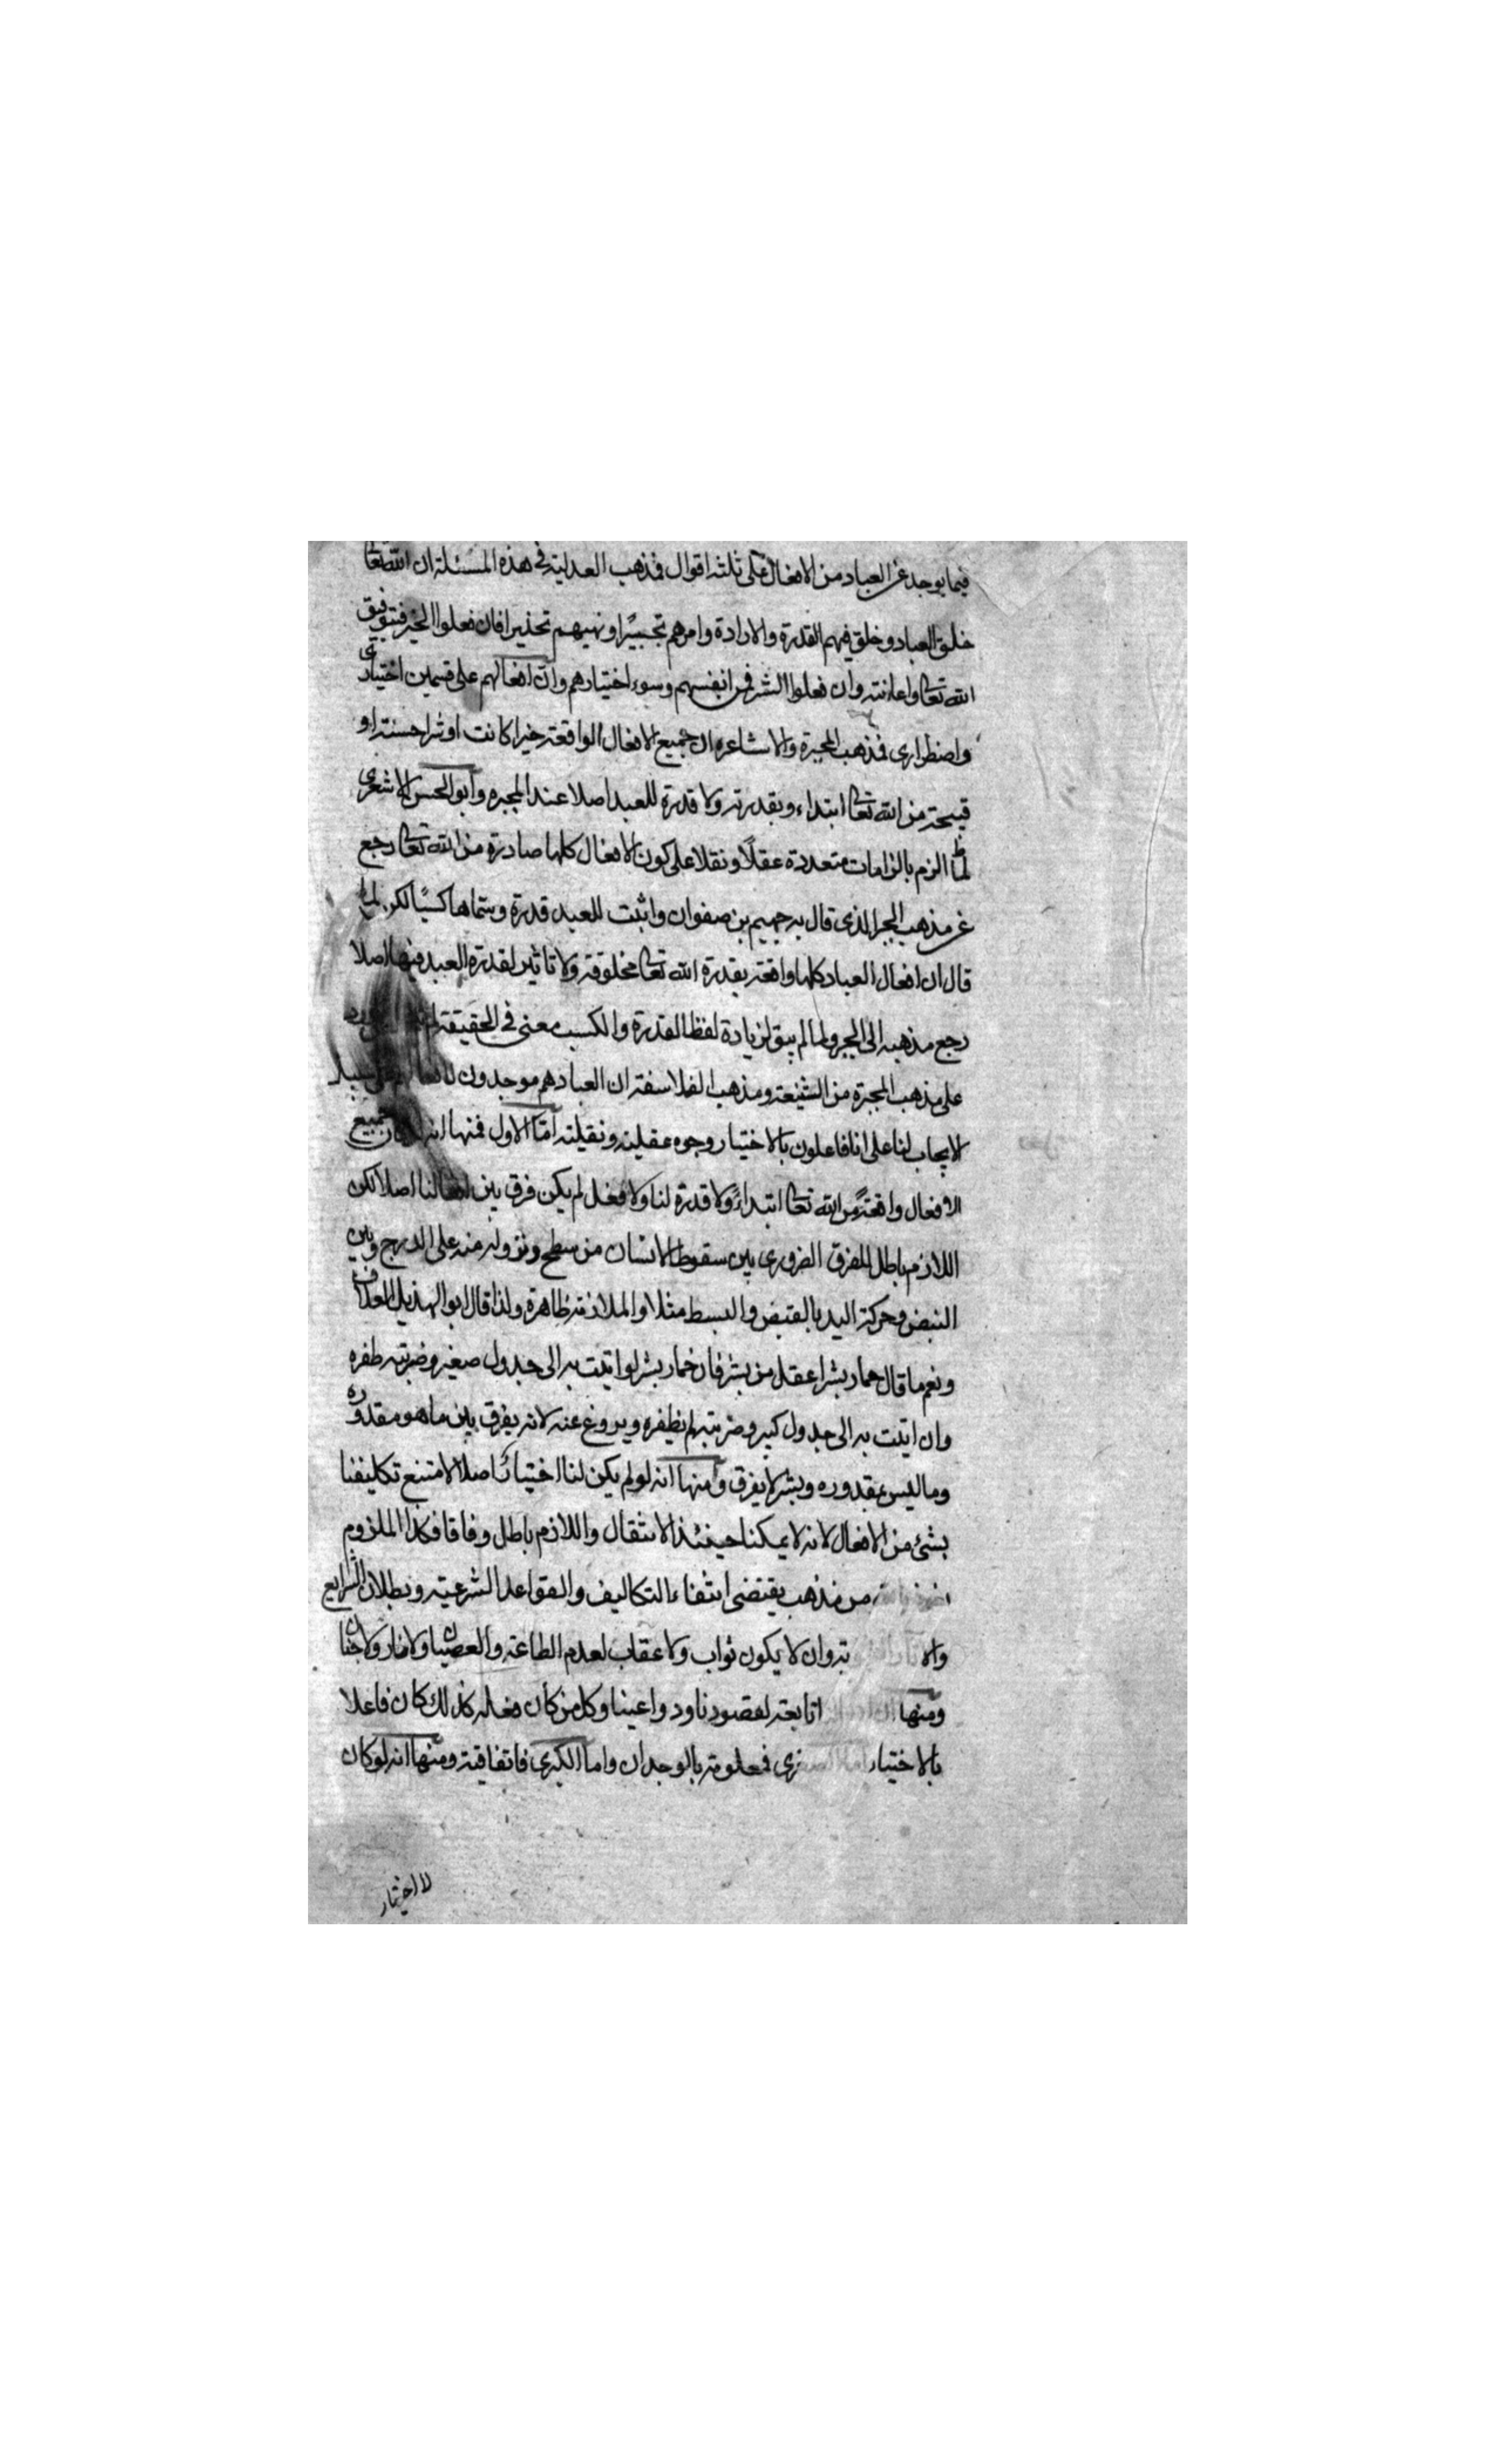 فيما يوجد عن العباد من الافعال على ثلثة اقوال فمذهب العدلية في هذه المسئلة ان الله تعالى
خلق العباد وخلق فيهم القدرة والارادة وامرهم تخييرًا ونهيهم تحذيرا فان فعلوا الخير فبتوفيق
الله تعالى واعانته وان فعلوا الشر فمن انفسهم وسوء اختيارهم وان افعالهم على قسمين اختيارى
واضطرارى فمذهب المجبرة والاشاعره ان جميع الافعال الواقعة خيرا كانت او شرا حسنة او
قبيحة من الله تعالى ابتداء وبقدرته ولا قدرة للعبد اصلا عند المجبره وابو الحسن الاشعرى
لما الزم بالزامات متعددة عقلًا ونقلا على كون الافعال كلها صادرة من الله تعالى رجع
عن مذهب الجبر الذى قال به جهيم بن صفوان واثبت للعبد قدرة وسماها كسبًا لكن لما
قال ان افعال العباد كلها واقعة بقدرة الله تعالى مخلوقة ولا تاثير لقدرة العبد فيها اصلا
رجع مذهبه الى الجبر ولما لم يبق لزيادة لفظ القدرة والكسب معنى في الحقيقة
على مذهب المجبرة من الشنيعة ومذهب الفلاسفة ان العباد هم موجدون
لايجاب لنا على انا فاعلون بالاختيار وجوه عقلية ونقلية اما الاول فمنها انه لو كان جميع
الافعال واقعةً من الله تعالى ابتداءً ولا قدرة لنا ولا فعل لم يكن فرق بين افعالنا اصلا لكن
اللازم باطل للفرق الضرورى بين سقوط الانسان من سطح ونزوله منه على الدرج وبين
النبض وحركة اليد بالقبض والبسط مثلا والملازمة ظاهرة ولذا قال ابو الهذيل العلاف
ونعم ما قال حمار بشر اعقل من بشر فان حمار بشر لو اتيت به الى جدول صغير وضربته طفره
وان اتيت به الى جدول كبير وضربته لم يطفره ويروغ عنه لانه يفرق بين ما هو مقدوره
وما ليس بمقدوره وبشر لا يفرق ومنها انه لو لم يكن لنا اختيارًا اصلا لامتنع تكليفنا
بشئ من الافعال لانه لا يمكنا حينئذ الامتثال واللازم باطل وفاقا فكذا الملزوم
من مذهب يقتضى انتفاء التكاليف والقواعد الشرعية وبطلان الشرايع
وان لا يكون ثواب ولا عقاب لعدم الطاعة والعصيان ولا نار ولا جنان
ومنها تابعة لقصودنا ودواعينا وكل من كان فعله كذلك كان فاعلا
بالاختيار اما الصغرى فمعلومة بالوجدان واما الكبرى فاتفاقية ومنها انه لو كان
لا اختيار